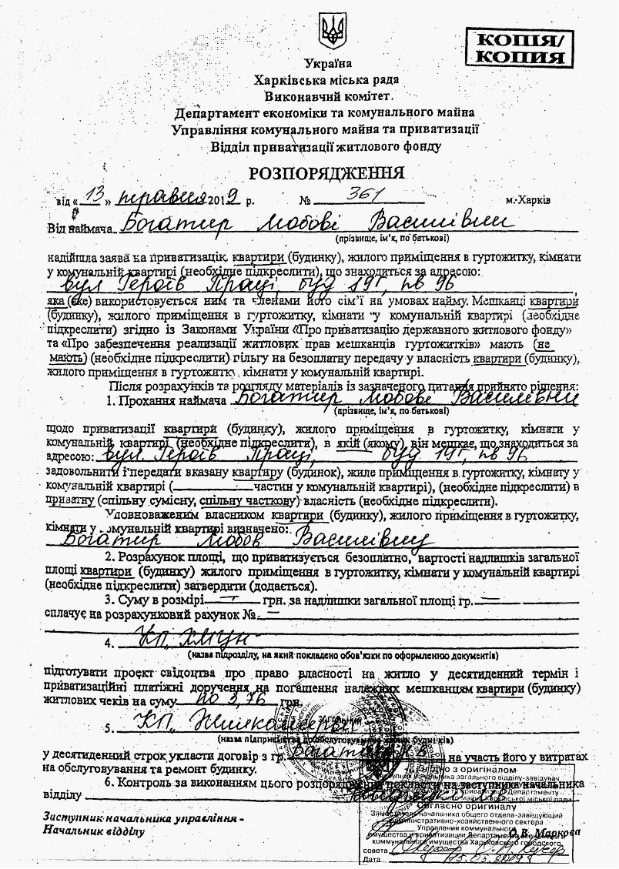 КОПІЯ/
КОПИЯ
Україна
Харківська міська рада
Виконавчий комітет.
Департамент економіки та комунального майна
Управління комунального майна та приватизації
Відділ приватизації житлового фонду
РОЗПОРЯДЖЕННЯ
від « 13 » травня 2019 р. № 361 м.Харків
Від наймача Богатир Любові Василівни
(прізвище, ім'я, по батькові)
надійшла заява на приватизацію квартири (будинку), жилого приміщення в гуртожитку, кімнати
у комунальній квартирі (необхідне підкреслити), що знаходиться за адресою:
вул Героїв Праці, буд 19г, кв 96
яка (яке) використовується ним та членами його сім'ї на умовах найму. Мешканці квартири
(будинку), жилого приміщення в гуртожитку, кімнати у комунальній квартирі (необхідне
підкреслити) згідно із Законами України «Про приватизацію державного житлового фонду»
та «Про забезпечення реалізації житлових прав мешканців гуртожитків» мають (не
мають) (необхідне підкреслити) пільгу на безоплатну передачу у власність квартири (будинку),
жилого приміщення в гуртожитку, кімнати у комунальній квартирі.
Після розрахунків та розгляду матеріалів із зазначеного питання прийнято рішення:
1. Прохання наймача Богатир Любові Василівни
(прізвище, ім'я, по батькові)
щодо приватизації квартири (будинку), жилого приміщення в гуртожитку, кімнати у
комунальній квартирі (необхідне підкреслити), в якій (якому) він мешкає, що знаходиться за
адресою: вул Героїв Праці, буд 19г, кв 96
задовольнити і передати вказану квартиру (будинок), жиле приміщення в гуртожитку, кімнату у
комунальній квартирі ( частин у комунальній квартирі), (необхідне підкреслити) в
приватну (спільну сумісну, спільну часткову) власність (необхідне підкреслити).
Уповноваженим власником квартири (будинку), жилого приміщення в гуртожитку,
кімнати у комунальній квартирі визначено:
Богатир Любов Василівну
2. Розрахунок площі, що приватизується безоплатно, вартості надлишків загальної
площі квартири (будинку) жилого приміщення в гуртожитку, кімнати у комунальній квартирі
(необхідне підкреслити) затвердити (додається).
3. Суму в розмірі — грн. за надлишки загальної площі гр. —
сплачує на розрахунковий рахунок № —
4. КП
(назва підрозділу, на який покладено обов'язки по оформленню документів)
підготувати проєкт свідоцтва про право власності на житло у десятиденний термін і
приватизаційні платіжні доручення на погашення належних мешканцям квартири (будинку)
житлових чеків на суму по 3,76 грн.
5. КП „Жилкомсервіс"
(назва підприємства по обслуговуванню жилих будинків)
у десятиденний строк укласти договір з гр. Богатир Л.В. на участь його у витратах
на обслуговування та ремонт будинку.
6. Контроль за виконанням цього розпорядження покласти на заступника начальника
відділу
Заступник начальника управління -
Начальник відділу
О.В. Маркова
Згідно з оригіналом
Согласно оригиналу
Заместитель начальника общего отдела-заведующий
административно-хозяйственного сектора
Управления коммунального
имущества и приватизации Департамента экономики и
коммунального имущества Харьковского городского
совета
Дата